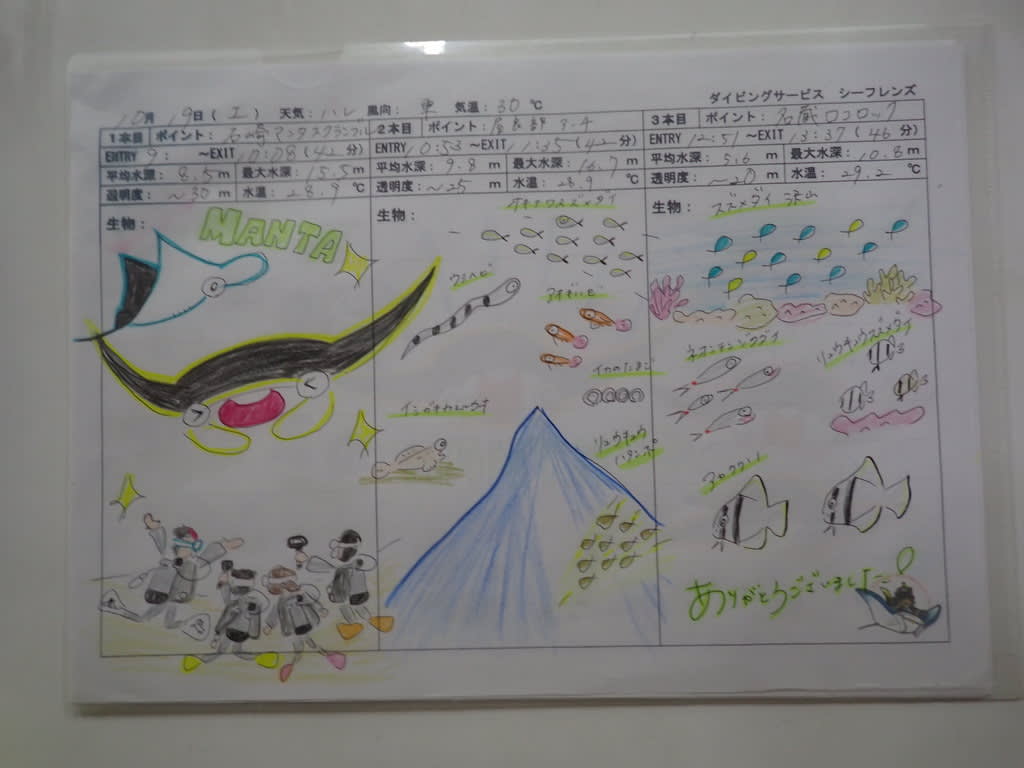 ダイビングサービス シーフレンズ
10月 19日(土) 天気:ハレ 風向: 東 気温:30℃
1本目 ポイント:石崎マンタスクランブル
ENTRY 9: ~EXIT 10:08(42分)
平均水深: 8.5m 最大水深:15.5m
透明度: ~30m 水温: 28.9℃
生物:
MANTA
2本目 ポイント:屋良部アーチ
ENTRY 10:53~EXIT 11:35(42分)
平均水深: 9.8m 最大水深: 16.7m
透明度:~25m 水温: 28.9℃
生物:
ウミヘビ
アオギハゼ
イカのたまご
リュウキュウ
ハタンポ
3本目 ポイント: 名蔵ロコロック
ENTRY 12:51~EXIT 13:37(46分)
平均水深: 5.6m 最大水深: 10.8m
透明度: ~20m 水温: 29.2℃
生物: スズメダイ 沢山
ネオンテンジクダイ
リュウキュウスズメダイ
ありがとうございました